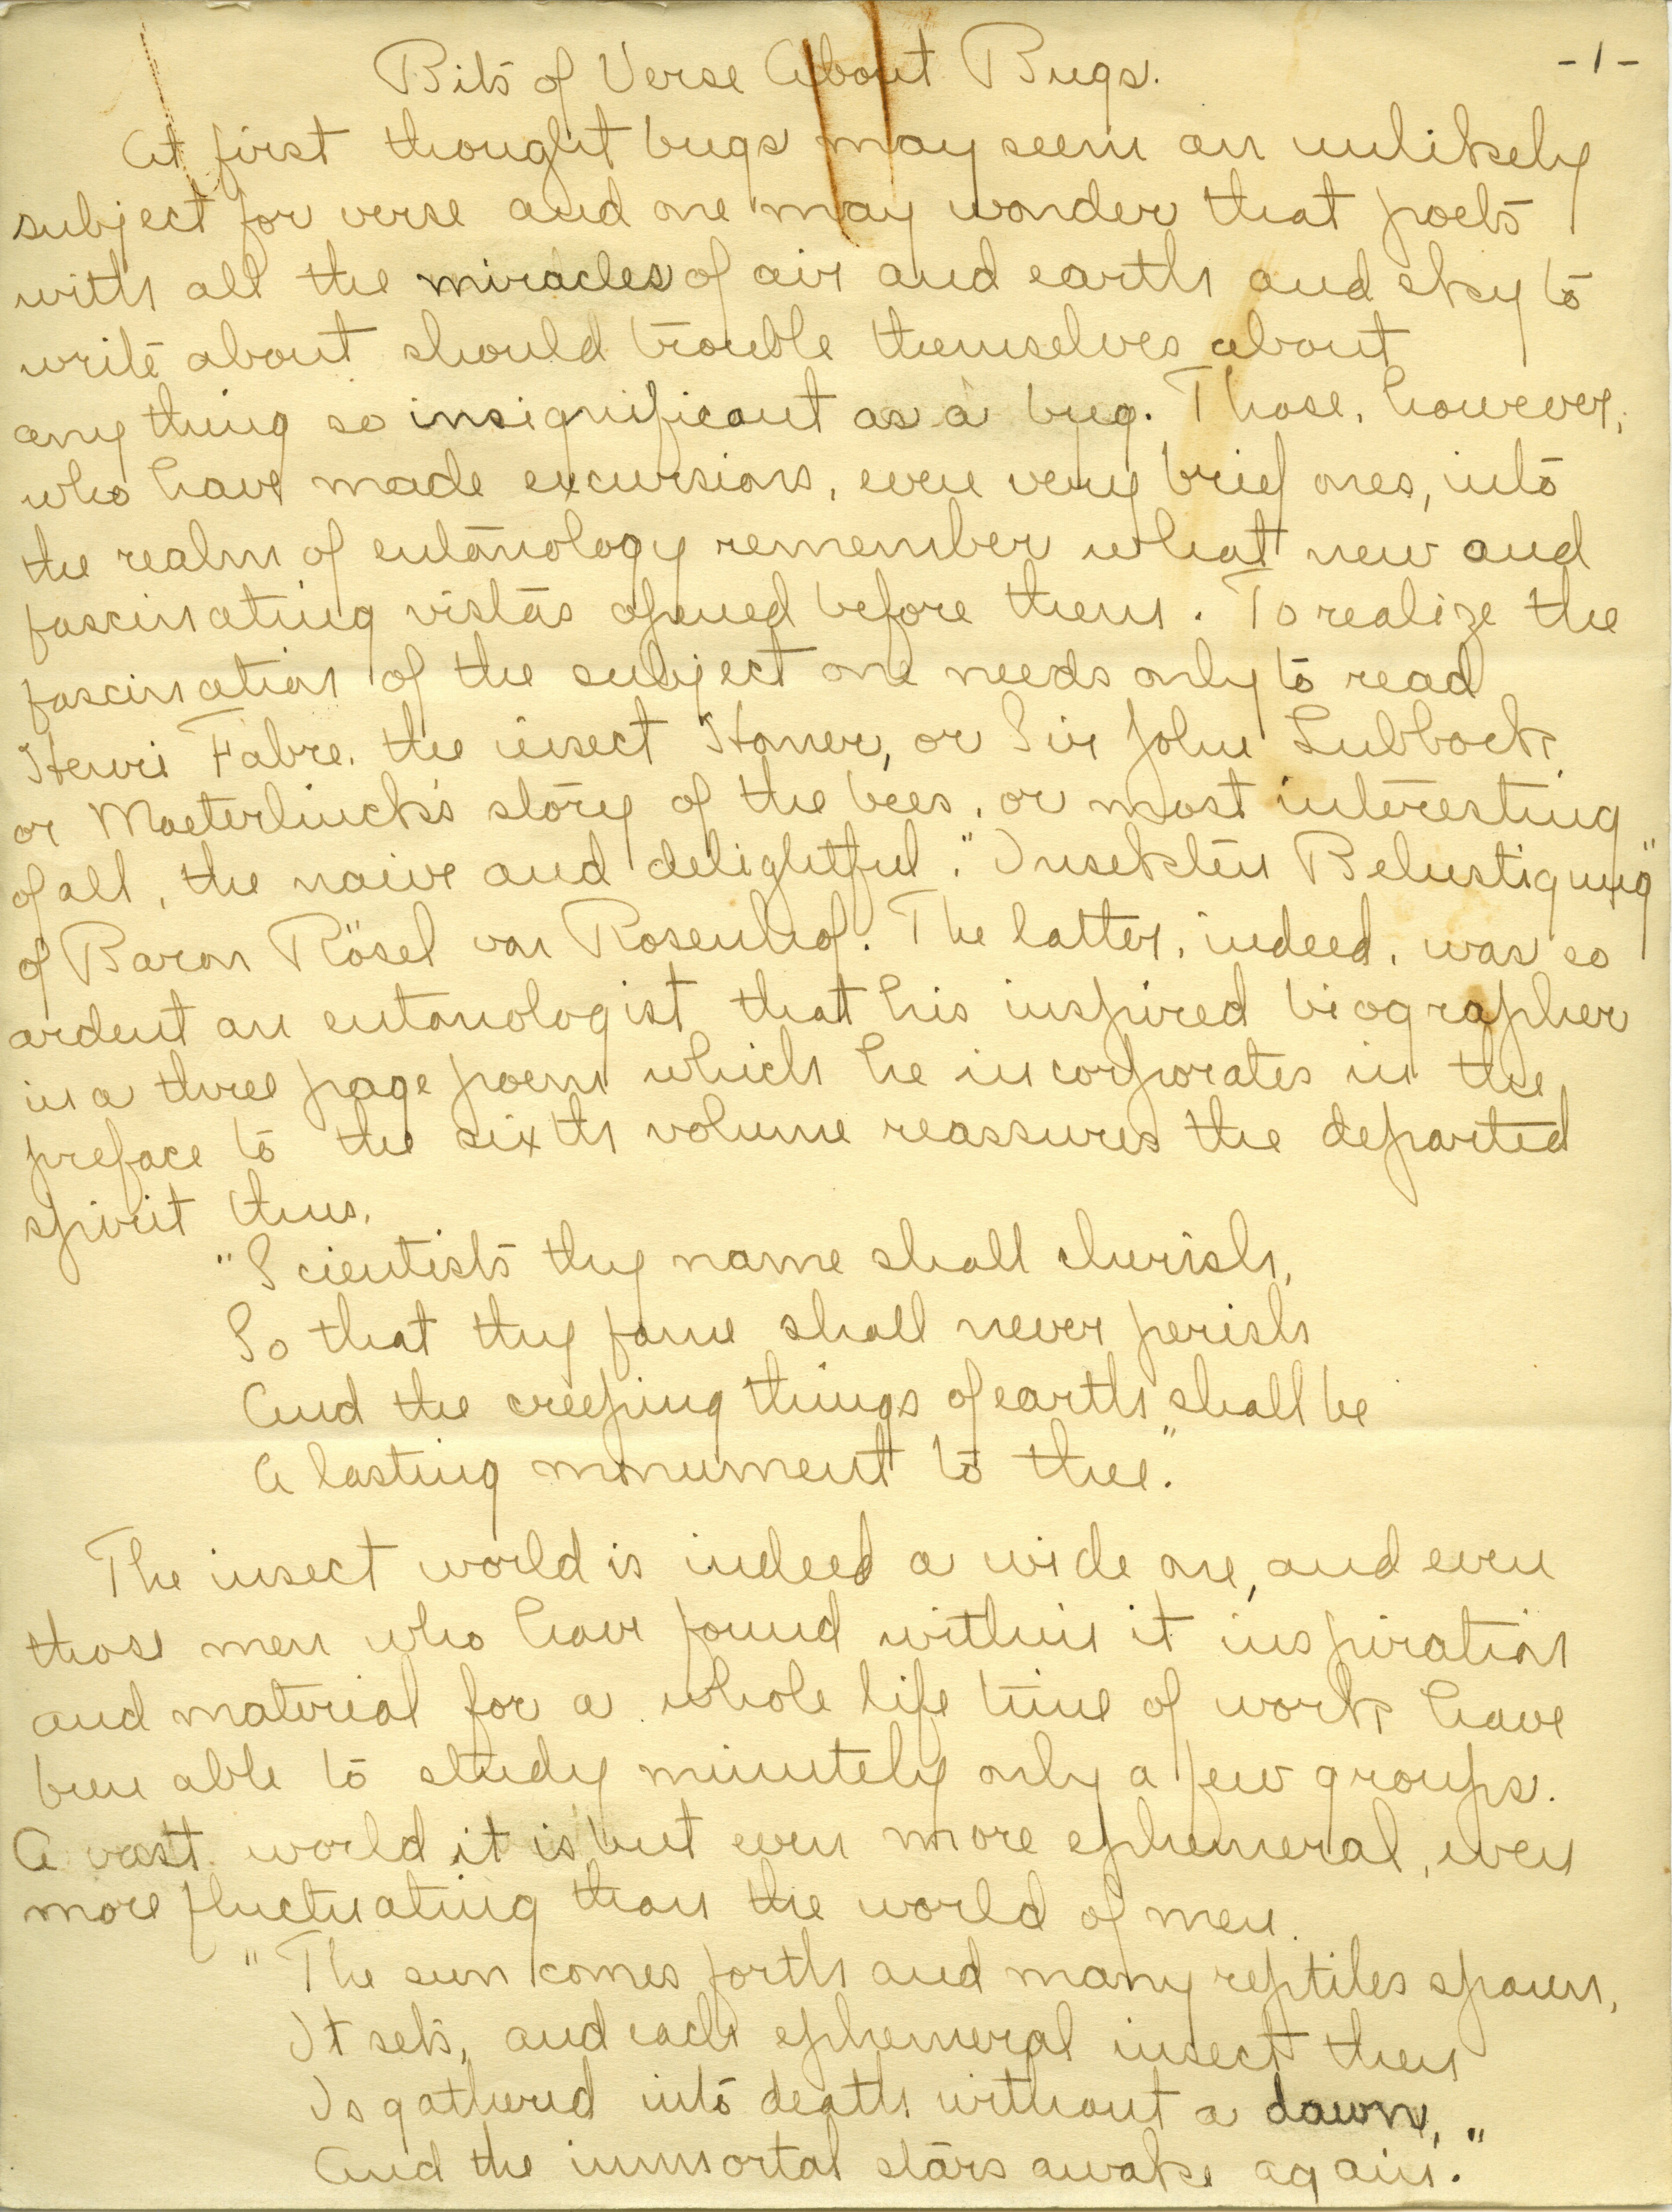 Bits of Verse About Bugs. -1-
At first thought bugs may seem an unlikely
subject for verse and one may wonder that poets
with all the miracles of air and earth and sky to
write about should trouble themselves about
any thing so insignificant as a bug. Those, however,
who have made excursions, even very brief ones, into
the realm of entomology remember what new and
fascinating vistas opened before them. To realize the
fascination of the subject one needs only to read
Henri Fabre, the insect Homer, or Sir John Lubbock,
or Maeterlinck's story of the bees, or most interesting
of all, the naive and delightful, "Insekten Belustigung"
of Baron Rösel von Rosenhof. The latter, indeed, was so
ardent an entomologist that his inspired biographer
in a three page poem which he incorporates in the
preface to the sixth volume reassures the departed
spirit thus,
"Scientists thy name shall cherish,
So that thy fame shall never perish
And the creeping things of earth shall be
A lasting monument to thee."
The insect world is indeed a wide one, and even
those men who have found within it inspiration
and material for a whole life time of work have
been able to study minutely only a few groups.
A vast world it is but even more ephemeral, even
more fluctuating than the world of men.
"The sun comes forth and many reptiles spawn,
It sets, and each ephemeral insect then
Is gathered into death without a dawn,
And the immortal stars awake again."